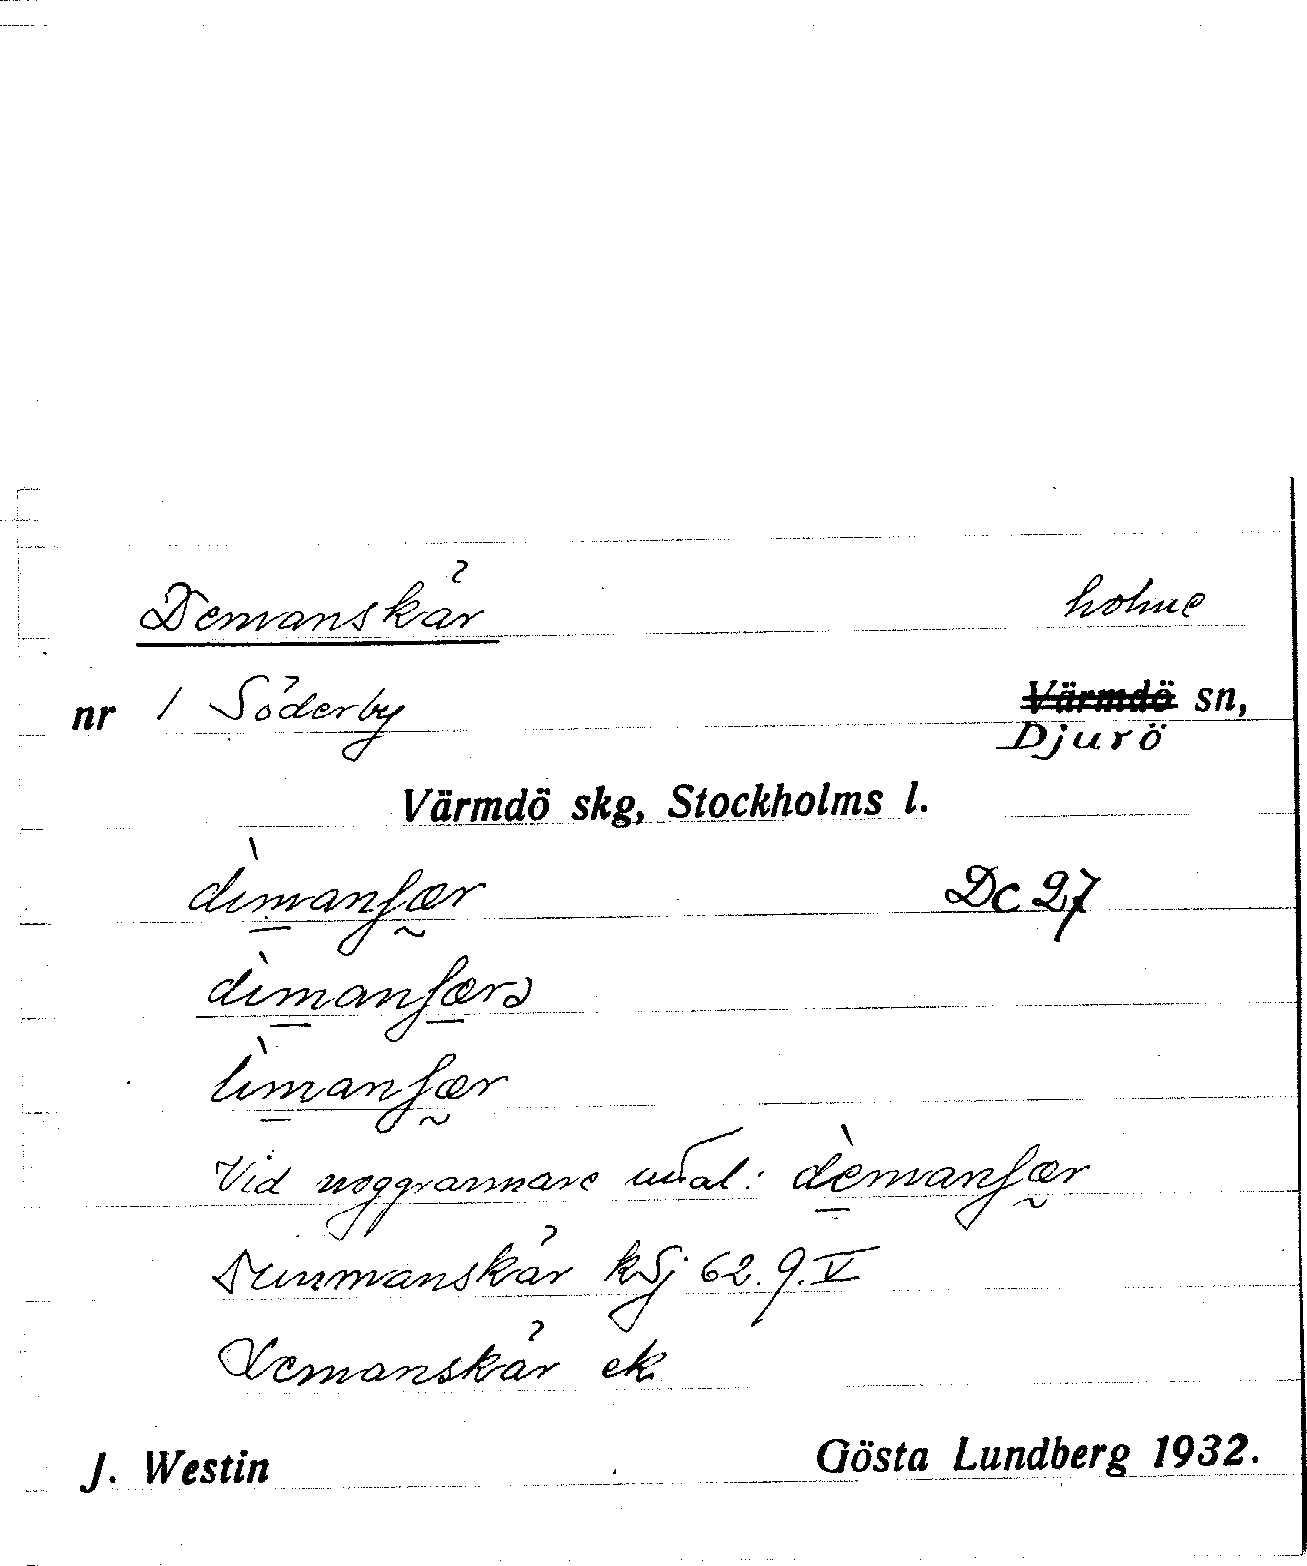 Demanskär holme
nr 1 Söderby Värmdö sn,
Djurö
Värmdö skg, Stockholms l.
dìmanʃær Dc 27
dìmanʃærə
lìmanʃær
Vid noggrannare uttal: dèmanʃær
manskär kSj 62.9.V
Demanskär ek
J. Westin Gösta Lundberg 1932.